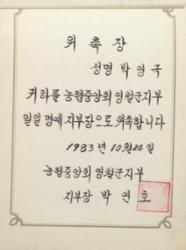 위촉장
성명 박영국
귀하를 농협중앙회 영월군지부
일일 명예 지부장으로 위촉합니다
1983년 10월 24일
농협중앙회 영월군지부
지부장 박연호